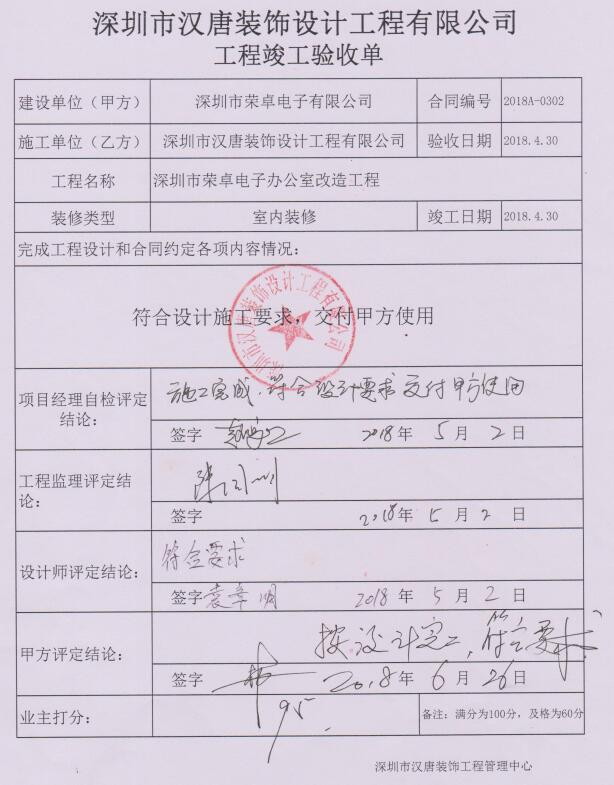 深圳市汉唐装饰设计工程有限公司
工程竣工验收单
建设单位（甲方） 深圳市荣卓电子有限公司 合同编号 2018A-0302
施工单位（乙方） 深圳市汉唐装饰设计工程有限公司 验收日期 2018.4.30
工程名称 深圳市荣卓电子办公室改造工程
装修类型 室内装修 竣工日期 2018.4.30
完成工程设计和合同约定各项内容情况：
符合设计施工要求，交付甲方使用
深圳市汉唐装饰设计工程有限公司
项目经理自检评定结论： 施工完成，符合设计要求交付甲方使用
签字 2018年 5月 2日
工程监理评定结论：
签字 2018年 5月 2日
设计师评定结论： 符合要求
签字 袁章明 2018年 5月 2日
甲方评定结论： 按设计完工，符合要求
签字 2018年 6月 26日
业主打分： 95 备注：满分为100分，及格为60分
深圳市汉唐装饰工程管理中心